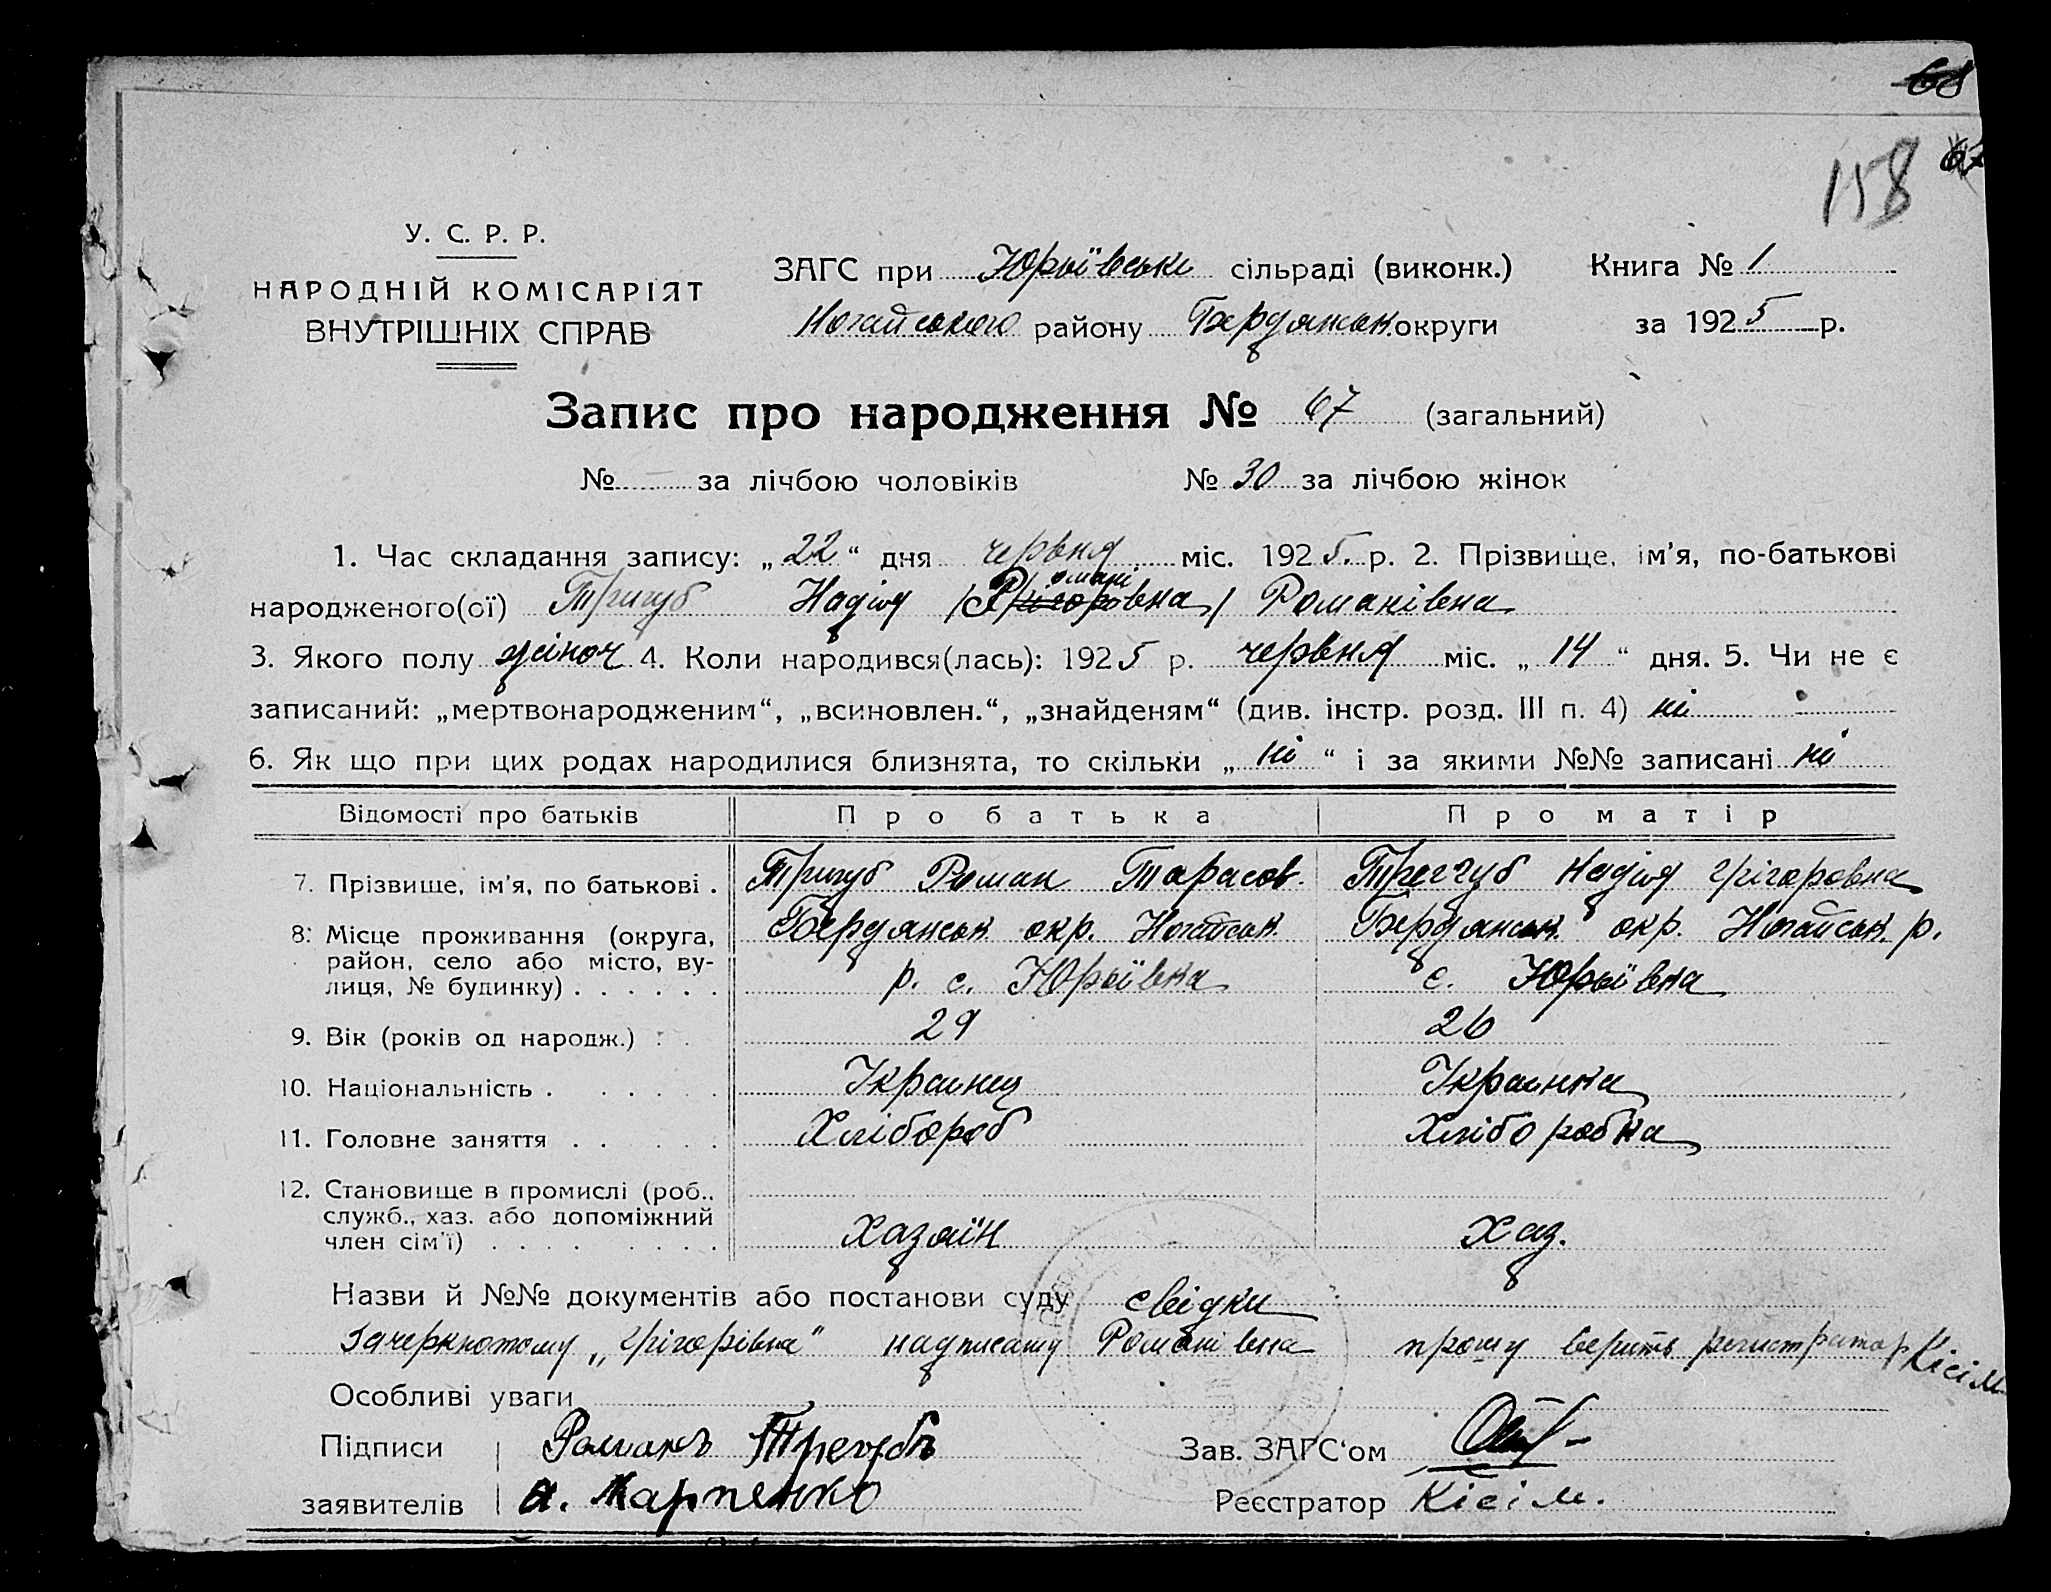 68
67
158
У. С. Р. Р.
НАРОДНІЙ КОМІСАРІЯТ
ВНУТРІШНІХ СПРАВ
ЗАГС при Юрьївські сільраді (виконк.) Книга № 1
Ногайського району Бердянськ. округи за 1925 р.
Запис про народження № 67 (загальний)
№ — за лічбою чоловіків № 30 за лічбою жінок
1. Час складання запису: „22“ дня червня міс. 1925. р. 2. Прізвище, ім'я, по-батькові
народженого(ої) Тригуб Надія /Григоровна/ Романівна
3. Якого полу жіноч 4. Коли народився(лась): 1925 р. червня міс. „14“ дня. 5. Чи не є
записаний: „мертвонародженим“, „всиновлен.“, „знайденям“ (див. інстр. розд. III п. 4) ні
6. Як що при цих родах народилися близнята, то скільки „ні“ і за якими №№ записані ні
Відомості про батьків Про батька Про матір
7. Прізвище, ім'я, по батькові . Тригуб Роман Тарасов. Трегуб Надія Грігоровна
8. Місце проживання (округа, Бердянськ окр. Ногайськ Бердянськ. окр. Ногайськ р.
район, село або місто, ву-
лиця, № будинку) . . . . . . р. с. Юрьївка с. Юрьївка
9. Вік (років од народж.) 29 26
10. Національність . . . . . Ікраинец Ікраинка
11. Головне заняття . . . . . Хлібороб Хліборобка
12. Становище в промислі (роб.,
служб., хаз. або допоміжний
член сім'ї) . . . . . . . . Хазяїн Хаз.
Назви й №№ документів або постанови суду свідки
Зачеркнотому „Грігорівна“ надписаму Романівна прошу верить регистратор Кісім
Особливі уваги
Підписи Романъ Трегубъ Зав. ЗАГС'ом
заявителів А. Карпенко Реєстратор Кісім.